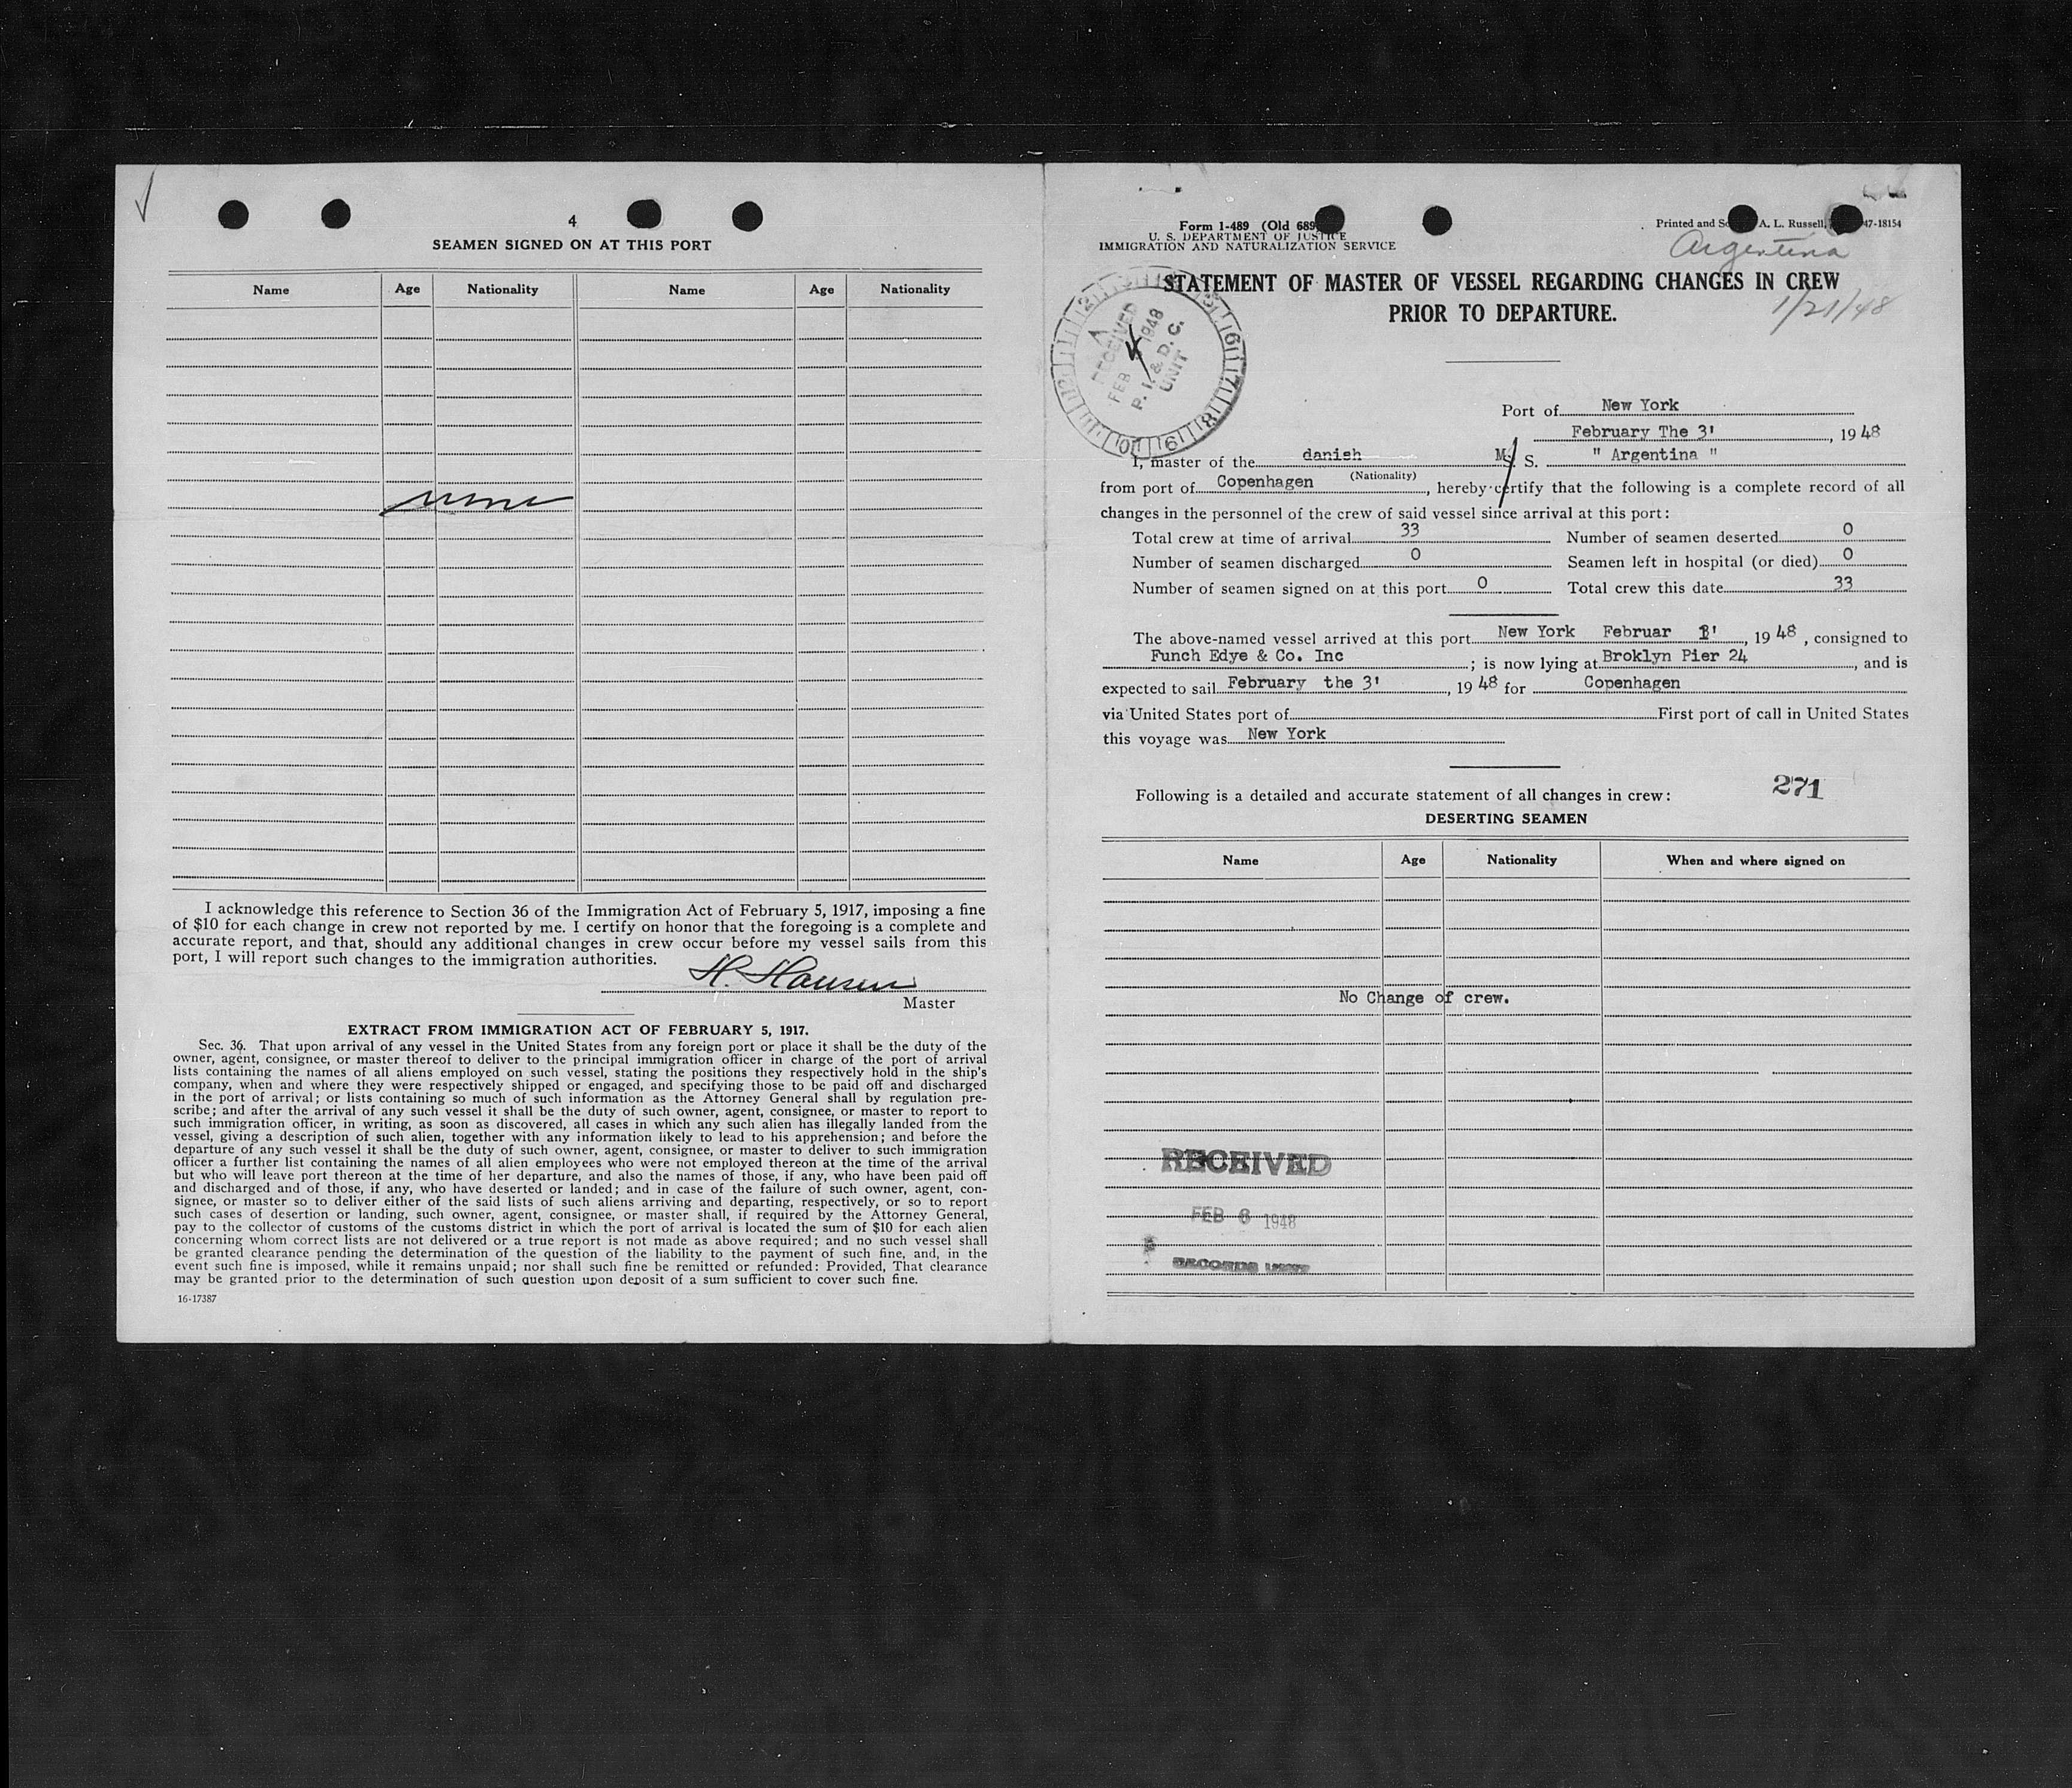 4
SEAMEN SIGNED ON AT THIS PORT
Name Age Nationality Name Age Nationality
none
I acknowledge this reference to Section 36 of the Immigration Act of February 5, 1917, imposing a fine
of $10 for each change in crew not reported by me. I certify on honor that the foregoing is a complete and
accurate report, and that, should any additional changes in crew occur before my vessel sails from this
port, I will report such changes to the immigration authorities.
H. Hansen
Master
EXTRACT FROM IMMIGRATION ACT OF FEBRUARY 5, 1917.
Sec. 36. That upon arrival of any vessel in the United States from any foreign port or place it shall be the duty of the
owner, agent, consignee, or master thereof to deliver to the principal immigration officer in charge of the port of arrival
lists containing the names of all aliens employed on such vessel, stating the positions they respectively hold in the ship's
company, when and where they were respectively shipped or engaged, and specifying those to be paid off and discharged
in the port of arrival; or lists containing so much of such information as the Attorney General shall by regulation pre-
scribe; and after the arrival of any such vessel it shall be the duty of such owner, agent, consignee, or master to report to
such immigration officer, in writing, as soon as discovered, all cases in which any such alien has illegally landed from the
vessel, giving a description of such alien, together with any information likely to lead to his apprehension; and before the
departure of any such vessel it shall be the duty of such owner, agent, consignee, or master to deliver to such immigration
officer a further list containing the names of all alien employees who were not employed thereon at the time of the arrival
but who will leave port thereon at the time of her departure, and also the names of those, if any, who have been paid off
and discharged and of those, if any, who have deserted or landed; and in case of the failure of such owner, agent, con-
signee, or master so to deliver either of the said lists of such aliens arriving and departing, respectively, or so to report
such cases of desertion or landing, such owner, agent, consignee, or master shall, if required by the Attorney General,
pay to the collector of customs of the customs district in which the port of arrival is located the sum of $10 for each alien
concerning whom correct lists are not delivered or a true report is not made as above required; and no such vessel shall
be granted clearance pending the determination of the question of the liability to the payment of such fine, and, in the
event such fine is imposed, while it remains unpaid; nor shall such fine be remitted or refunded: Provided, That clearance
may be granted prior to the determination of such question upon deposit of a sum sufficient to cover such fine.
16-17387
Form 1-489 (Old 689
U. S. DEPARTMENT OF JUSTICE
IMMIGRATION AND NATURALIZATION SERVICE
Printed and A. L. Russell, 47-18154
Argentina
STATEMENT OF MASTER OF VESSEL REGARDING CHANGES IN CREW
PRIOR TO DEPARTURE.
1/21/48
RECEIVED
FEB 1948
P. I. & D. C.
UNIT
Port of New York
February The 3', 1948
I, master of the danish M. S. " Argentina "
(Nationality)
from port of Copenhagen, hereby certify that the following is a complete record of all
changes in the personnel of the crew of said vessel since arrival at this port:
Total crew at time of arrival 33 Number of seamen deserted 0
Number of seamen discharged 0 Seamen left in hospital (or died) 0
Number of seamen signed on at this port 0 Total crew this date 33
The above-named vessel arrived at this port New York Februar 1', 1948, consigned to
Funch Edye & Co. Inc; is now lying at Broklyn Pier 24, and is
expected to sail February the 3', 1948 for Copenhagen
via United States port of First port of call in United States
this voyage was New York
271
Following is a detailed and accurate statement of all changes in crew:
DESERTING SEAMEN
Name Age Nationality When and where signed on
No Change of crew.
RECEIVED
FEB 6 1948
RECORDS UNIT